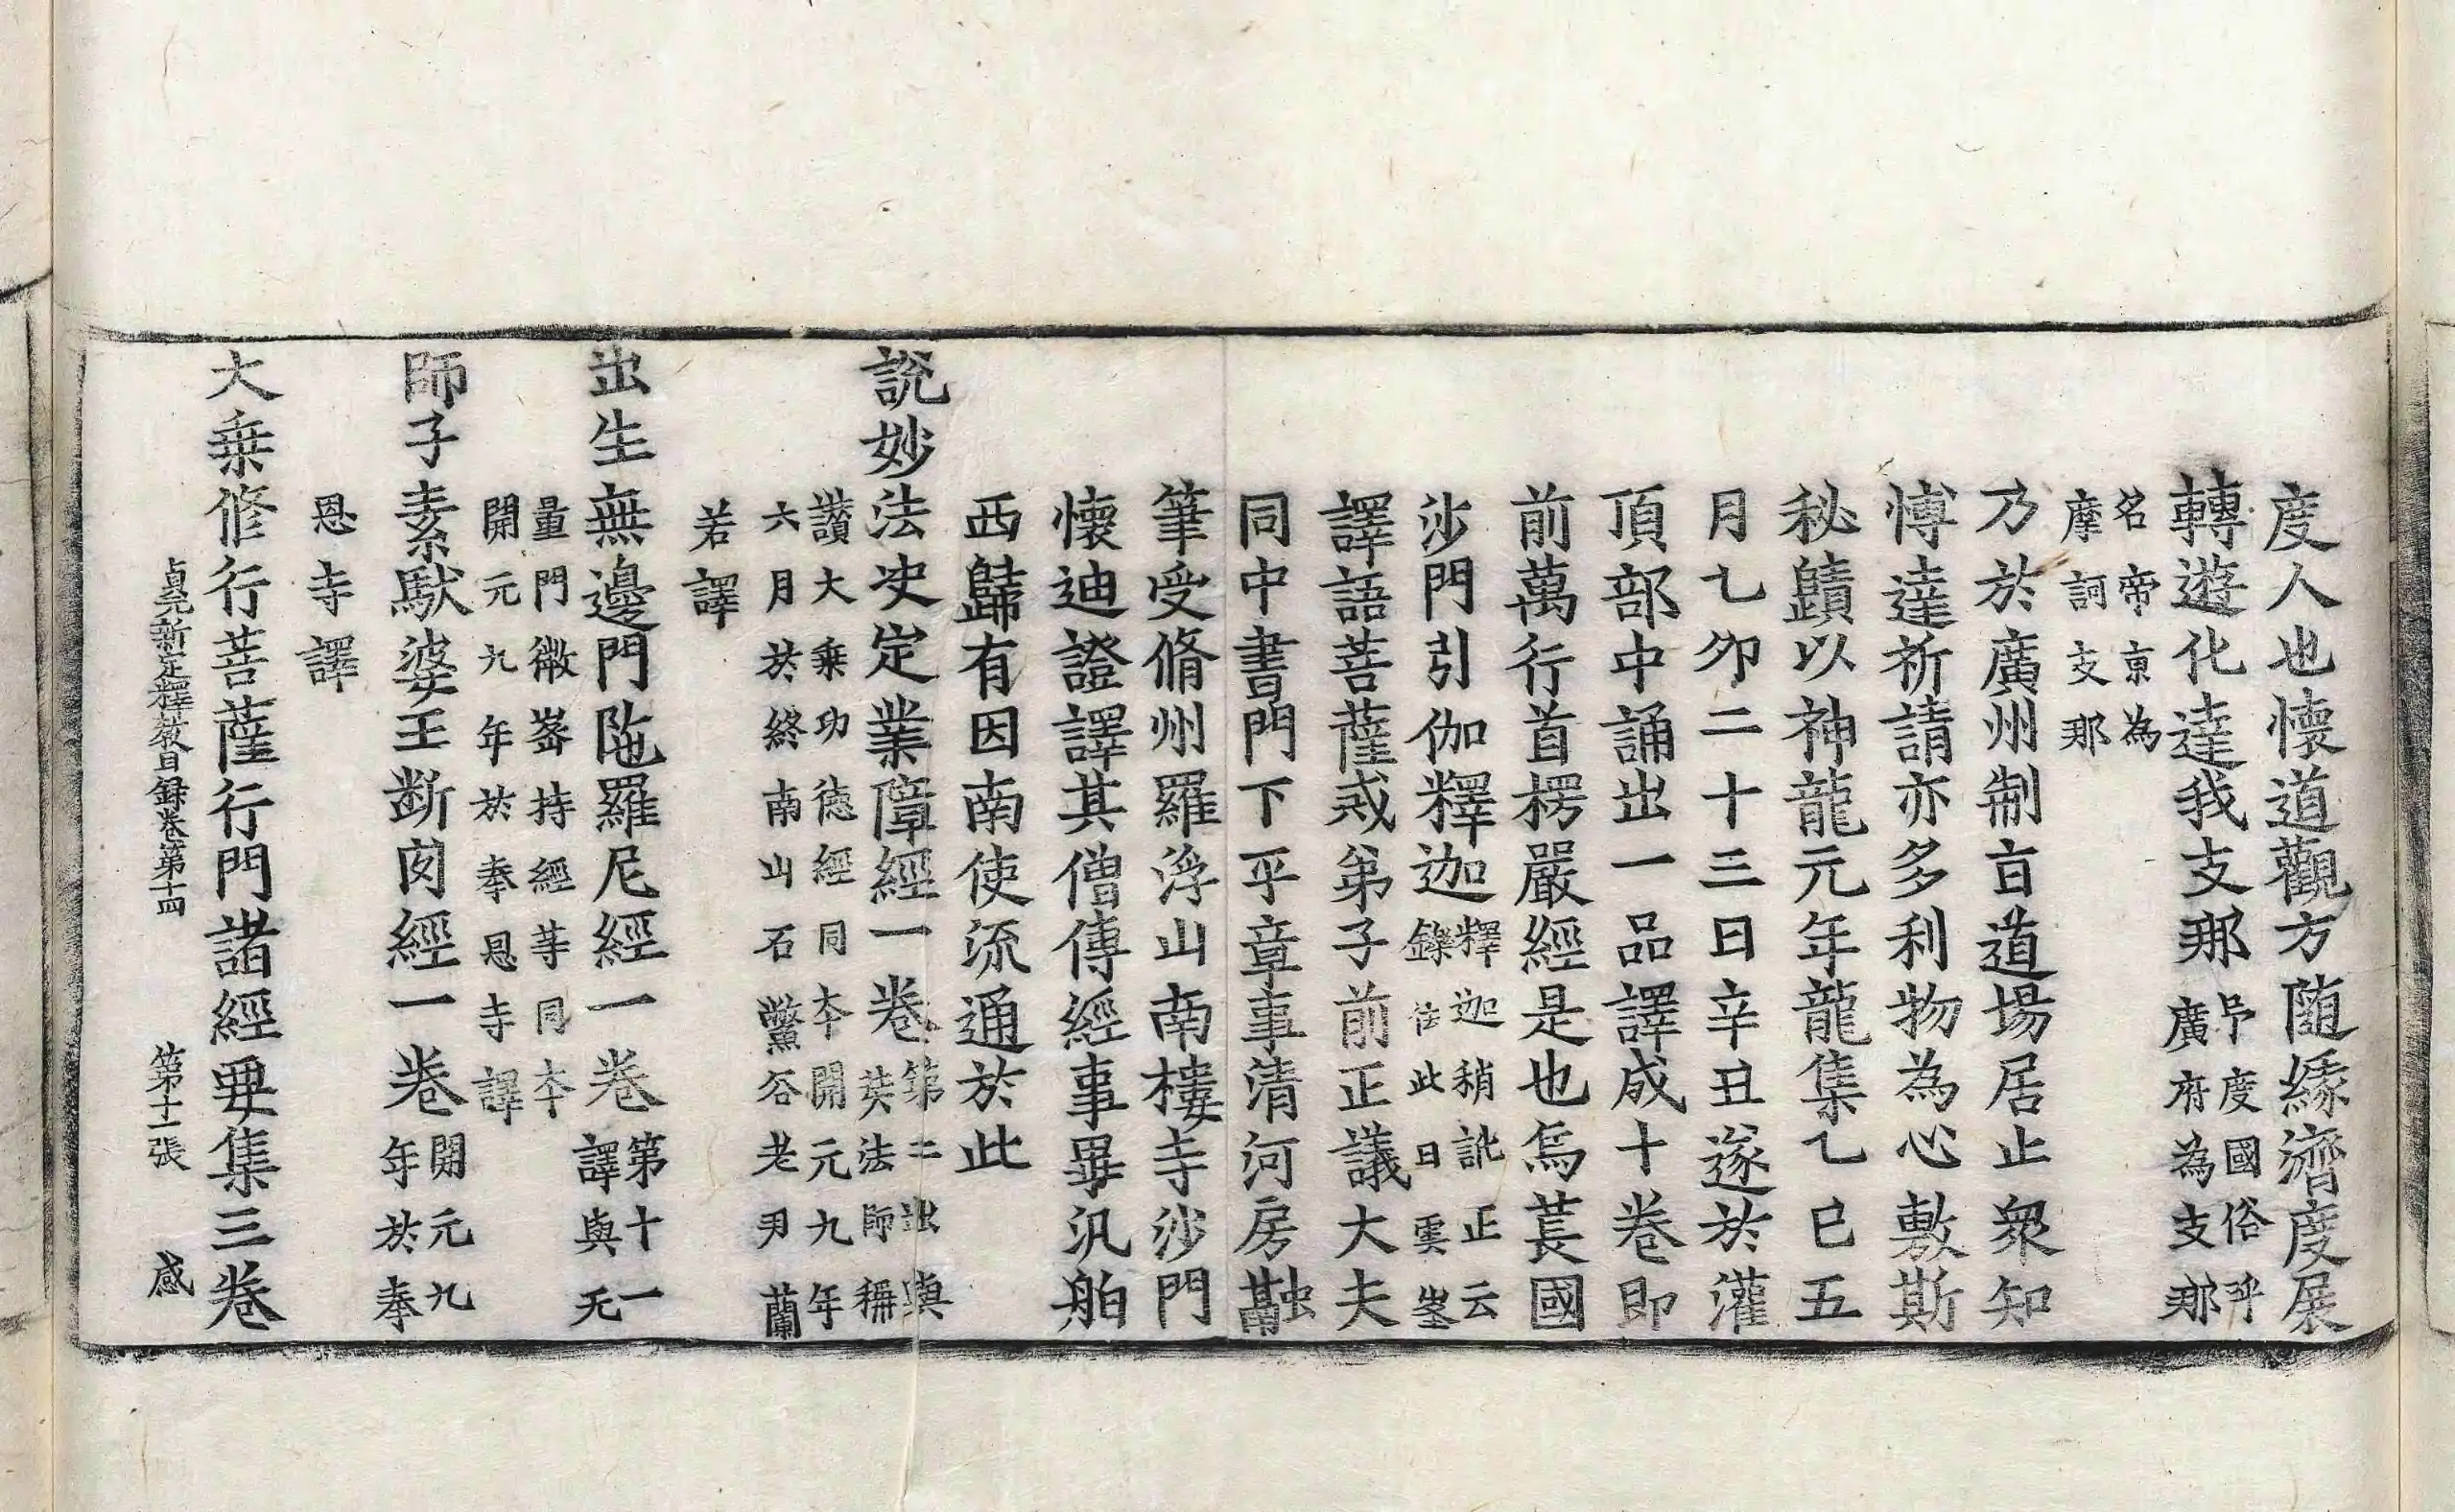 度人也懷道觀方随緣濟度展
轉遊化達我支那印度國俗呼廣府為支那
名帝京為摩訶支那
乃於廣州制旨道場居止衆知
愽達祈請亦多利物為心敷斯
秘賾以神龍元年龍集乙巳五
月乙夘二十三日辛丑遂於灌
頂部中誦出一品譯成十卷即
前萬行首楞嚴經是也烏萇國
沙門弥伽釋迦釋迦稍訛正云鑠佉此曰雲峯
譯語菩薩戒弟子前正議大夫
同中書門下平章事清河房融
筆受脩州羅浮山南樓寺沙門
懷迪證譯其僧傳經事畢汎舶
西歸有因南使流通於此
說妙法决定業障經一卷第二出與奘法師稱
讚大乘功德經同本開元九年六月於終南山石鱉谷老尹蘭
若譯
出生無邊門陁羅尼經一卷第十一譯與无
量門微宻持經等同本開元九年於奉恩寺譯
師子素馱娑王断肉經一卷開元九年於奉
恩寺譯
大乗修行菩薩行門諸經要集三卷
貞元新定釋教目録卷第十四 第十二張 感